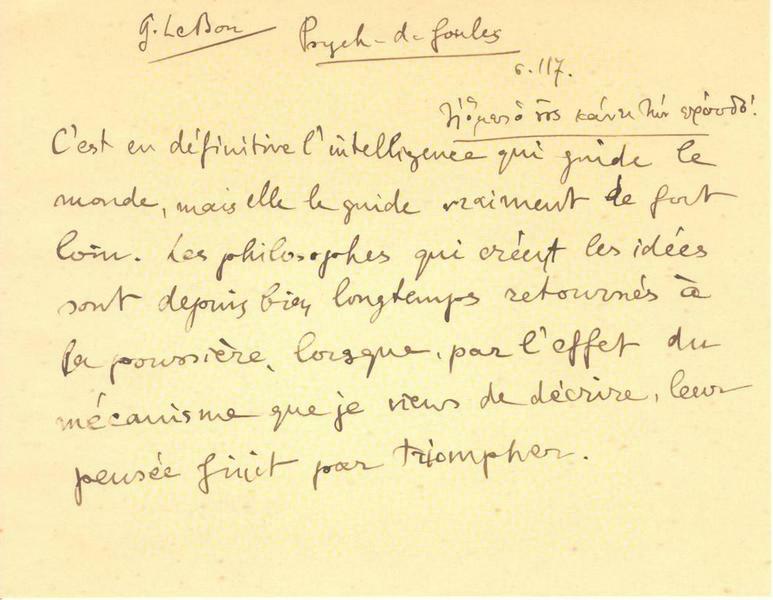 G. LeBon Psych- d- foules
σ. 117.
κάνει τήν πρόοδο!
C'est en définitive l'intelligence qui guide le
monde, mais elle le guide vraiment de fort
loin. Les philosophes qui créent les idées
sont depuis bien longtemps retournés à
la poussière, lorsque, par l'effet du
mécanisme que je viens de décrire, leur
pensée finit par triompher.